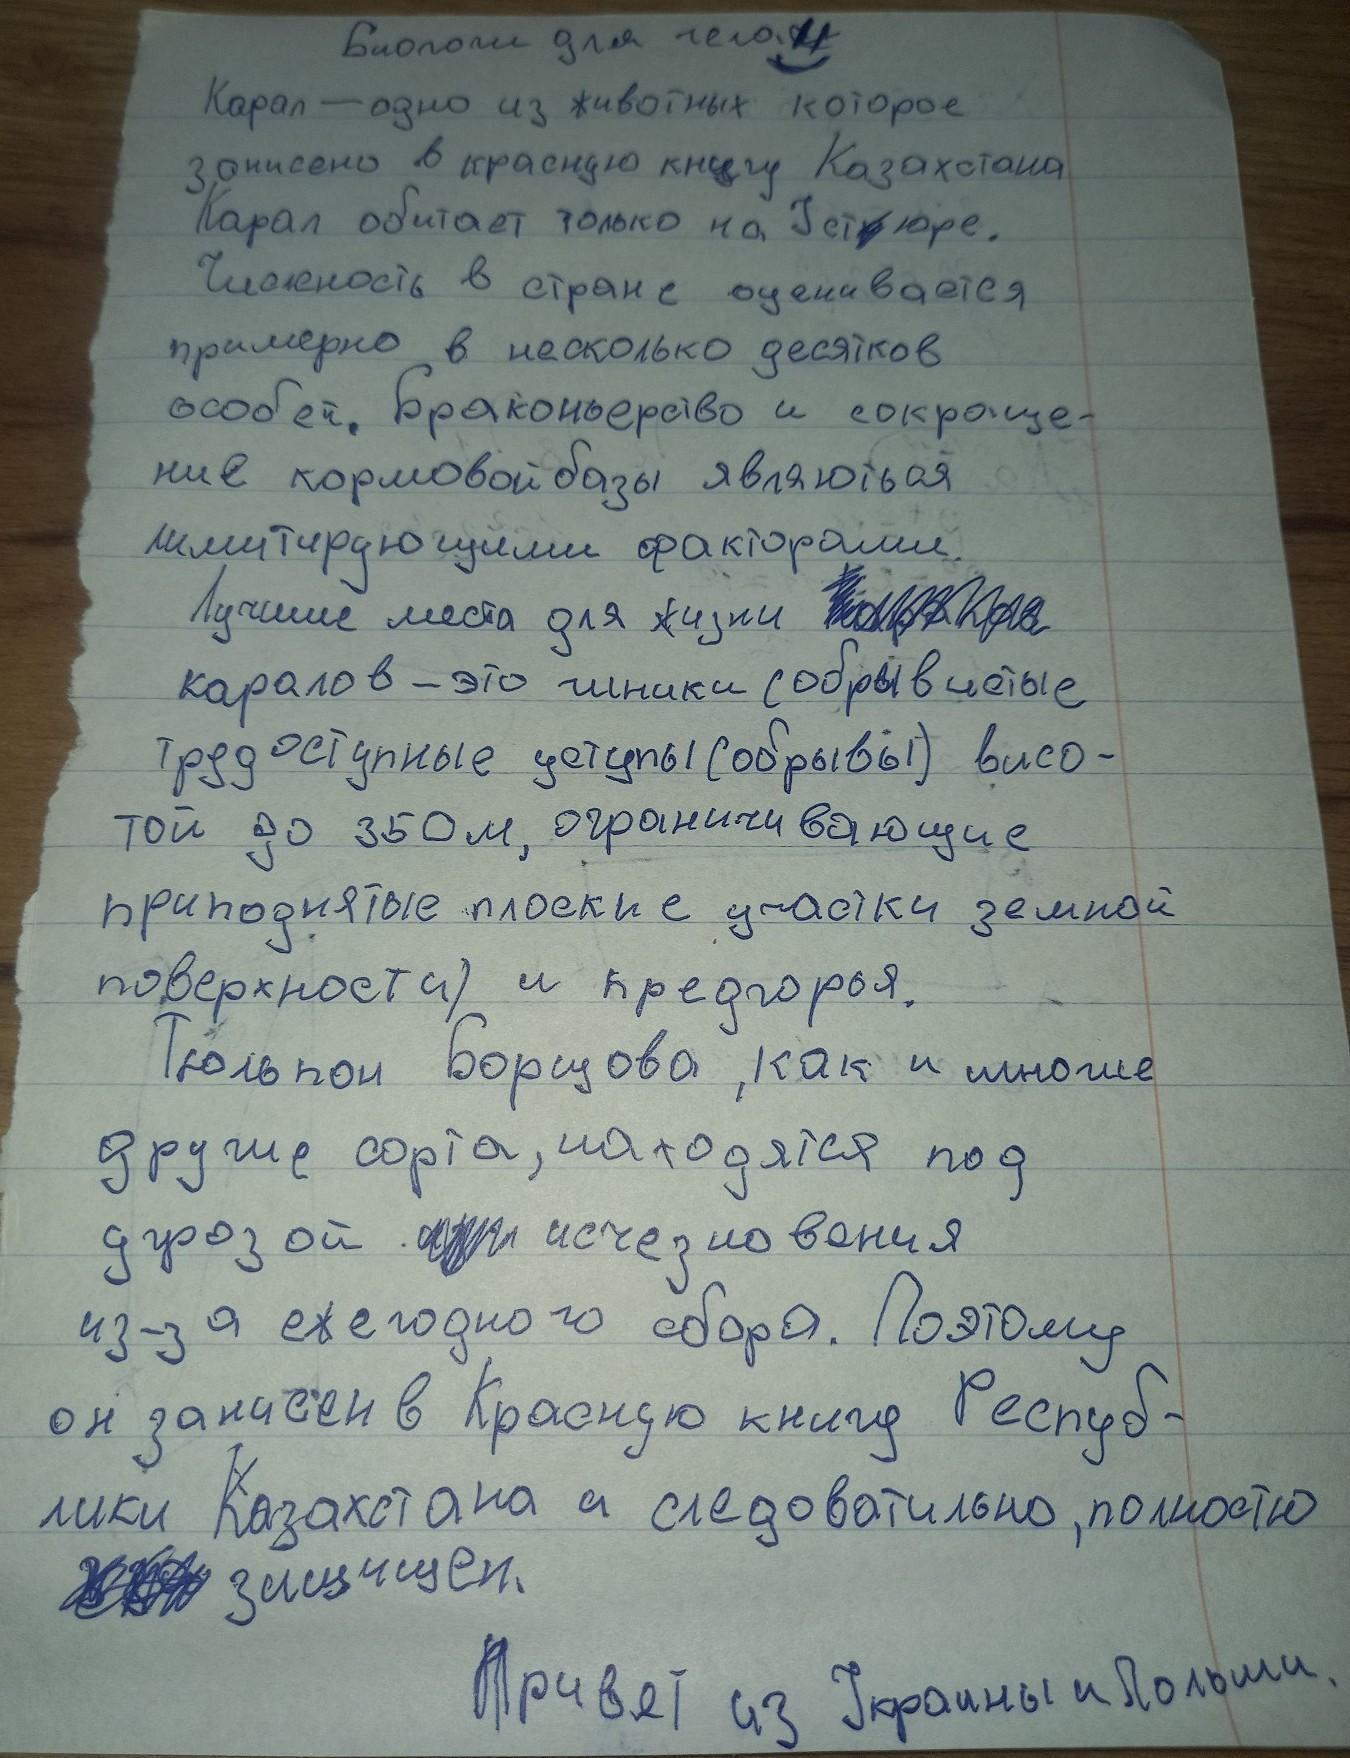 Биологи для чела
Карал — одно из животных которое
записено в красную книгу Казахстана
Карал обитает только на Устюре.
Числкность в стране оценивается
примерно в несколько десятков
особей. Браконьерство и сокраще-
ние кормовой базы являються
лимитирующими факторами.
Лучшие места для жизни
каралов – это чинки (обрывистые
трудоступные уступы (обрывы) висо-
той до 350м, ограничивающие
приподнятые плоские участки земной
поверхности) и предгорья.
Тюльпон Борщова, как и многие
другие сорта, находятся под
угрозой исчезновения
из-за ежегодного сбора. Поэтому
он записен в Красную книгу Респуб-
лики Казахстана и следоватильно, полностю
защищен.
Привет из Украины и Польши.